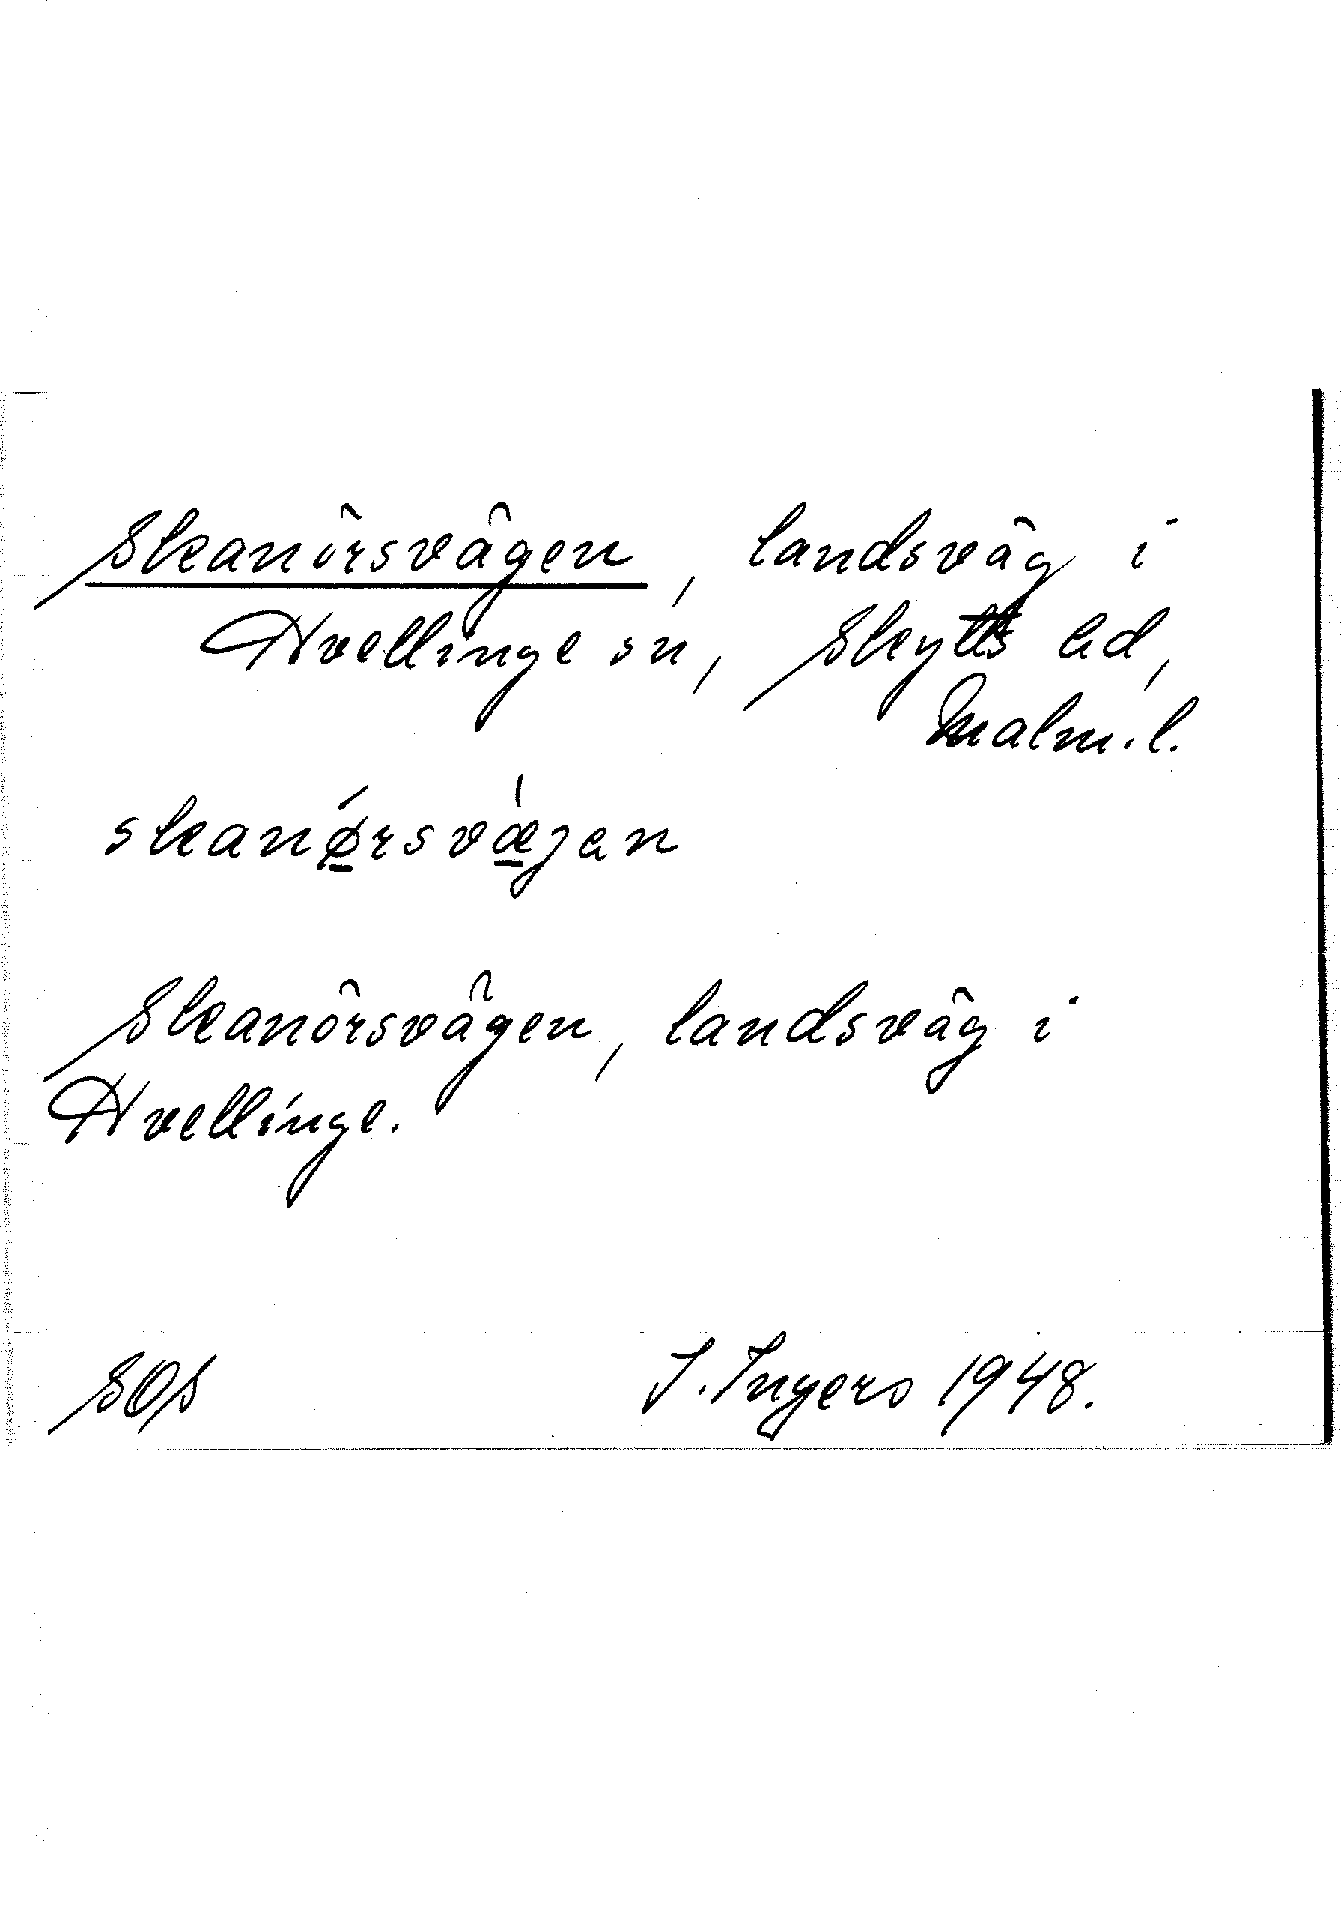 Skanörsvägen, landsväg i
Hvellinge sn, Skytts hd,
Malm. l.
skanǿrsvæjen
Skanörsvägen, landsväg i
Hvellinge.
SOS I. Ingers 1948.